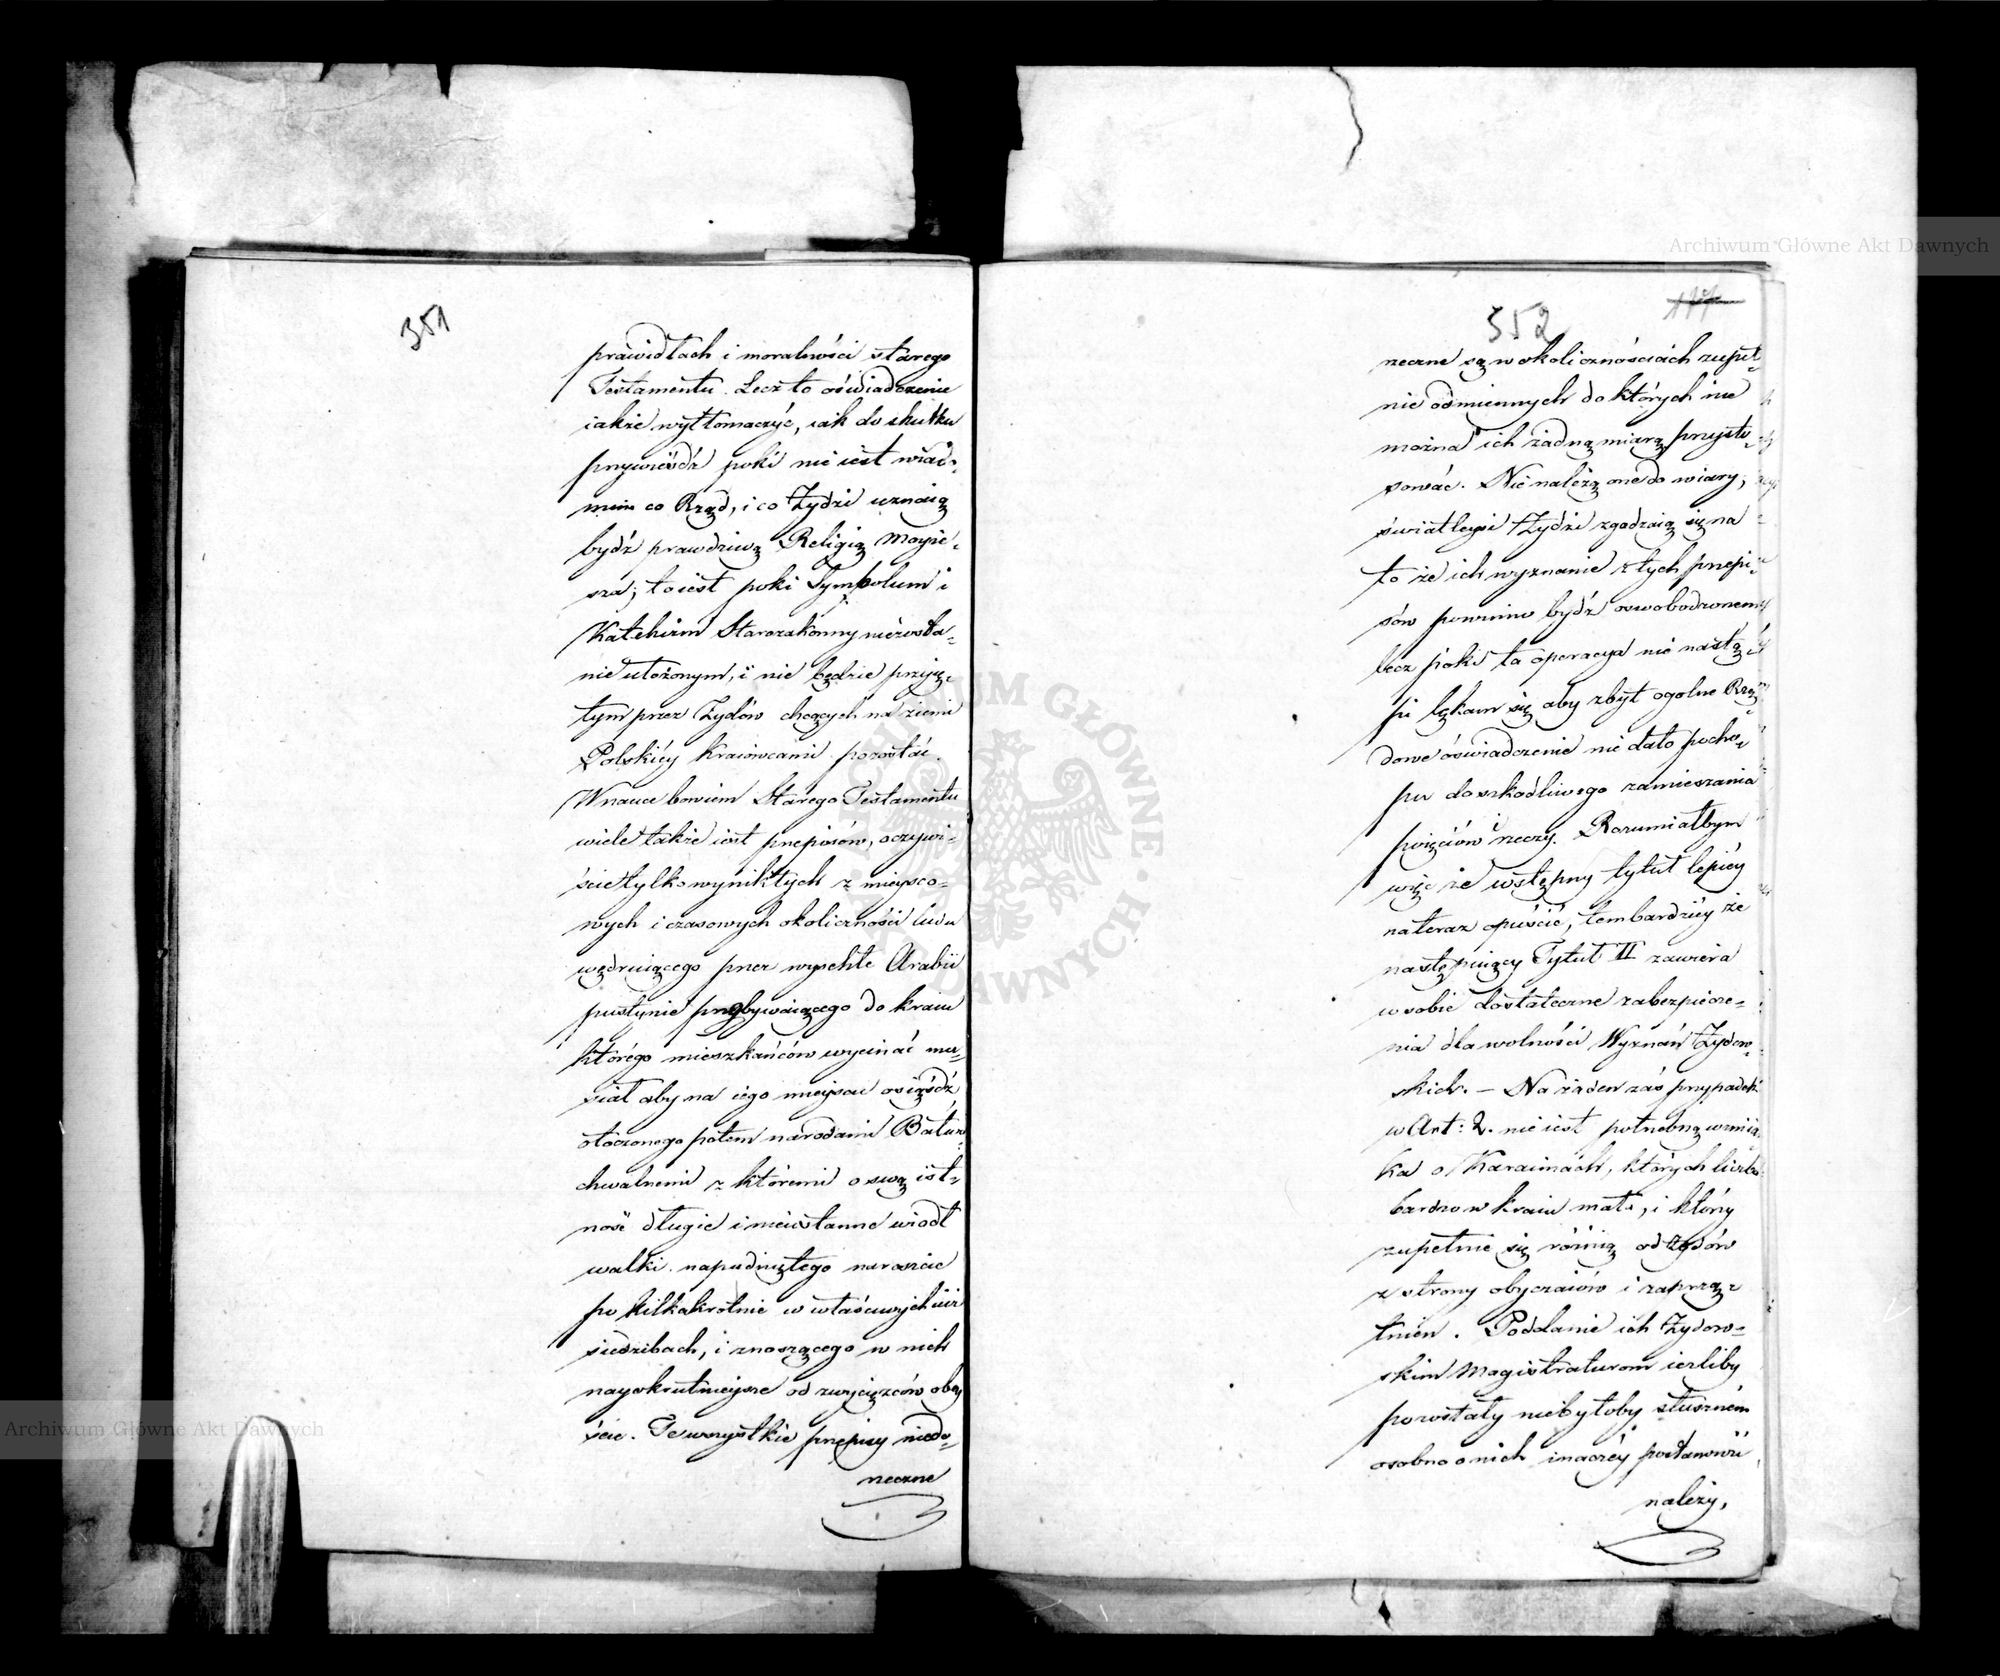 351
prawidłach i moralności starego
Testamentu. Lecz to oświadczenie
iakże wytłomaczyć, iak do skutku
przywieśdź poki nie iest wiado-
mem co Rząd, i co Żydzi uznaią
bydź prawdziwą Religią Moyże-
sza; to iest poki Symbolum i
Katehizm Starozakonny niezosta-
nie ułożonym, i nie będzie przyię-
tym przez Żydów chcących na ziemi
Polskiéy kraiowcami pozostać.
W nauce bowiem Starego Testamentu
wiele także iest przepisów, oczywi-
ście tylko wynikłych z mieysco-
wych i czasowych okoliczności ludu
wędruiącego przez wyschłe Arabii
pustynie przybywaiącego do kraiu
którego mieszkańców wycinać mu-
siał aby na iego mieyscu osięśdź
otoczonego potem narodami Bałwo-
chwalnemi z któremi o swą ist-
ność długie i nieustanne wiodł
walki. napadniętego nareszcie
po kilkakrotnie w właściwych iuż
siedzibach, i znoszącego w nich
nayokrutnieysze od zwycięzców obey
ście. Te wszystkie przepisy niedo-
rzeczne
352
rzeczne są w okolicznościach zupeł-
nie odmiennych do których nie
można ich żadną miarą przysto-
sować. Nie należą one do wiary;
światleysi Żydzi zgadzaią się na
to że ich wyznanie z tych przepi-
sów powinno bydź oswobodzonem
lecz poki ta operacya nie nastą-
pi lękam się aby zbyt ogolne Rzą-
dowe oświadczenie nie dało pocho-
pu do szkodliwego zamieszania
poięciów i rzeczy. Rozumiałbym
więc że wstępny tytuł lepiéy
na teraz opuścić, tembardziéy że
następuiący Tytuł II zawiera
w sobie dostateczne zabezpiecze-
nia dla wolności Wyznań Żydow-
skich. – Na żaden zaś przypadek
w Art: 2. nie iest potrzebną wzmian-
ka o Karaimach, których liczba
bardzo w kraiu mała, i którzy
zupełnie się różnią od Żydów
z strony obyczaiów i zaprzą-
tnień. Poddanie ich Żydow-
skim Magistraturom ieżliby
pozostały niebyłoby słusznem
osobno o nich inaczéy postanowić
należy,
Archiwum Główne Akt Dawnych
Archiwum Główne Akt Dawnych
ARCHIWUM GŁÓWNE AKT DAWNYCH